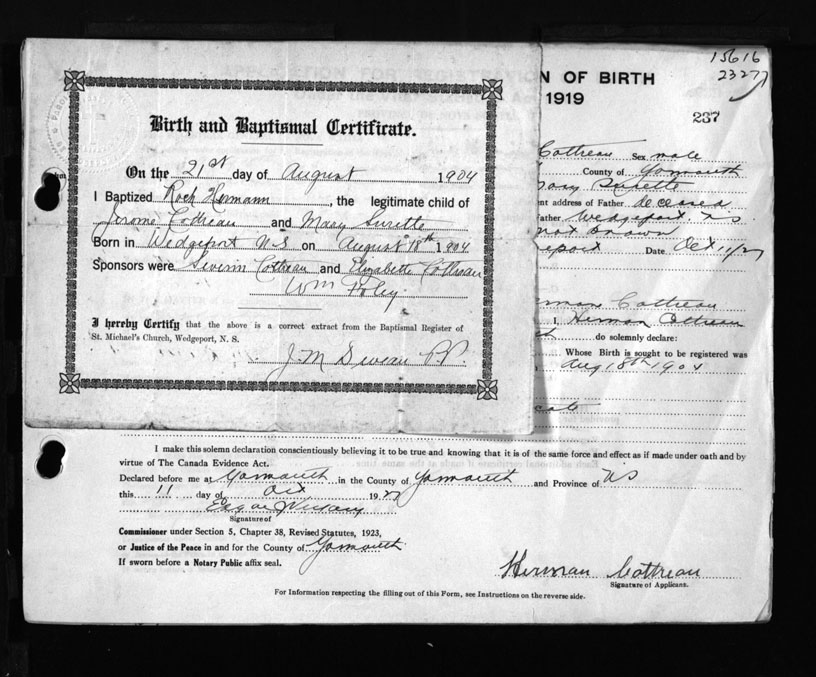 15616
23277
N OF BIRTH
1919
237
Birth and Baptismal Certificate.
On the 21st day of August 1904
I Baptized Roch Hermann, the legitimate child of
Jerome Cottreau and Mary Surette
Born in Wedgeport N.S on August 18th 1904
Sponsors were Severin Cottreau and Elizabeth Cottreau
Wm Foley
I hereby Certify that the above is a correct extract from the Baptismal Register of
St. Michael's Church, Wedgeport, N. S.
J. M. Sweau P.P
Cottreau Sex male
County of Yarmouth
Mary Surette
nt address of Father deceased
ather Wedgeport. N.S
not known
geport Date Oct 11/27
erman Cottreau
I, Herman Cottreau
do solemnly declare:
Whose Birth is sought to be registered was
Aug 18th 1904
cate
I make this solemn declaration conscientiously believing it to be true and knowing that it is of the same force and effect as if made under oath and by
virtue of The Canada Evidence Act.
Declared before me at Yarmouth in the County of Yarmouth and Province of NS
this 11 day of Oct 1927
Edgar
Signature of
Commissioner under Section 5, Chapter 38, Revised Statutes, 1923,
or Justice of the Peace in and for the County of Yarmouth
If sworn before a Notary Public affix seal.
Herman Cottreau
Signature of Applicant.
For Information respecting the filling out of this Form, see Instructions on the reverse side.